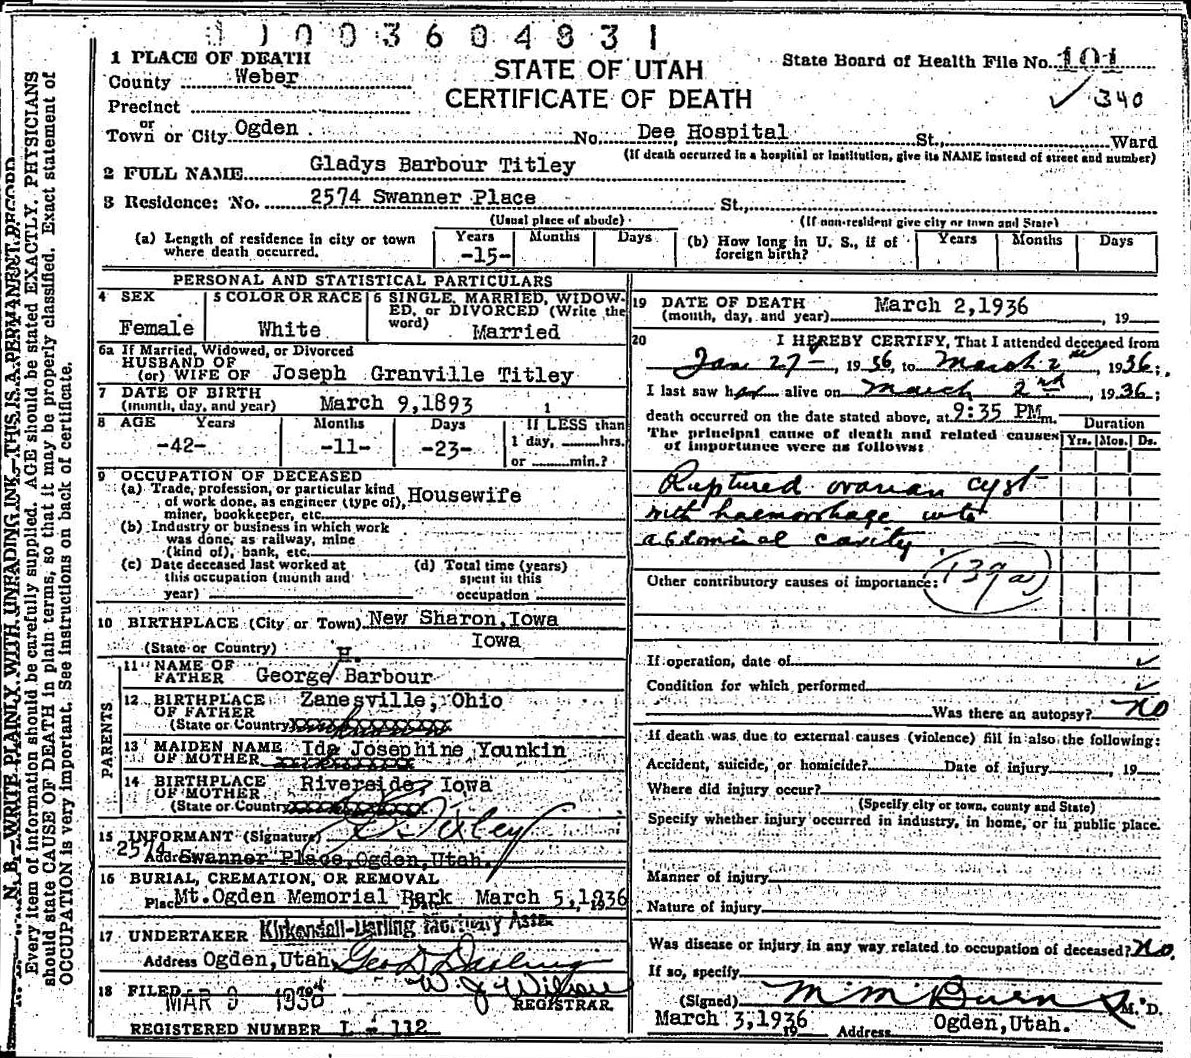 1003604831
1 PLACE OF DEATH
State Board of Health File No. 101
County Weber
STATE OF UTAH
340
Precinct
CERTIFICATE OF DEATH
or
Town or City Ogden No. Dee Hospital St., Ward
(If death occurred in a hospital or institution, give its NAME instead of street and number)
2 FULL NAME Gladys Barbour Titley
3 Residence: No. 2574 Swanner Place St.,
(Usual place of abode) (If non-resident give city or town and State)
(a) Length of residence in city or town where death occurred. Years -15- Months Days
(b) How long in U. S., if of foreign birth? Years Months Days
PERSONAL AND STATISTICAL PARTICULARS
4 SEX
Female
5 COLOR OR RACE
White
6 SINGLE, MARRIED, WIDOW-
ED, or DIVORCED (Write the
word) Married
6a If Married, Widowed, or Divorced
HUSBAND OF
(or) WIFE OF Joseph Granville Titley
7 DATE OF BIRTH
(month, day, and year) March 9,1893
8 AGE Years Months Days If LESS than
-42- -11- -23- 1 day, hrs.
or min.?
9 OCCUPATION OF DECEASED
(a) Trade, profession, or particular kind
of work done, as engineer (type of), Housewife
miner, bookkeeper, etc.
(b) Industry or business in which work
was done, as railway, mine
(kind of), bank, etc.
(c) Date deceased last worked at
this occupation (month and
year)
(d) Total time (years)
spent in this
occupation
10 BIRTHPLACE (City or Town) New Sharon, Iowa
(State or Country) Iowa
PARENTS
11 NAME OF
FATHER George H. Barbour
12 BIRTHPLACE Zanesville, Ohio
OF FATHER
(State or Country)
13 MAIDEN NAME Ida Josephine Younkin
OF MOTHER
14 BIRTHPLACE Riverside, Iowa
OF MOTHER
(State or Country)
15 INFORMANT (Signature) Titley
Address 2574 Swanner Place, Ogden, Utah.
16 BURIAL, CREMATION, OR REMOVAL
Place Mt. Ogden Memorial Park Date March 5, 1936
17 UNDERTAKER Kirkendall-Darling Mortuary Assn.
Address Ogden, Utah Geo D Darling
18 FILED MAR 9 1936 W. J. Wilson
REGISTRAR.
REGISTERED NUMBER L - 112
19 DATE OF DEATH March 2,1936
(month, day, and year) , 19
20 I HEREBY CERTIFY, That I attended deceased from
Jan 27, 1936, to March 2nd, 1936;
I last saw her alive on March 2nd, 1936;
death occurred on the date stated above, at 9:35 PM m.
The principal cause of death and related causes
of importance were as follows:
Duration
Yrs. Mos. Ds.
Ruptured ovarian cyst
with haemorrhage into
abdominal cavity
Other contributory causes of importance: 139a
If operation, date of
Condition for which performed
Was there an autopsy? No
If death was due to external causes (violence) fill in also the following:
Accident, suicide, or homicide? Date of injury , 19
Where did injury occur?
(Specify city or town, county and State)
Specify whether injury occurred in industry, in home, or in public place.
Manner of injury
Nature of injury
Was disease or injury in any way related to occupation of deceased? No.
If so, specify
(Signed) M. D.
March 3,1936 19 Address Ogden, Utah.
N. B.—WRITE PLAINLY WITH UNFADING INK—THIS IS A PERMANENT RECORD
Every item of information should be carefully supplied. AGE should be stated EXACTLY. PHYSICIANS
should state CAUSE OF DEATH in plain terms, so that it may be properly classified. Exact statement of
OCCUPATION is very important. See instructions on back of certificate.